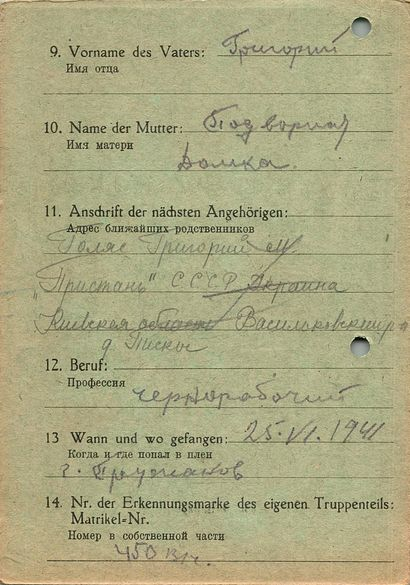 9. Vorname des Vaters: Григорий
Имя отца
10. Name der Mutter: Подворная
Имя матери
Домка.
11. Anschrift der nächsten Angehörigen:
Адрес ближайших родственников
Голяс Григорий
"Пристань" С.С.С.Р. Украина
Киевская область Васильковский р-н
д. Пиский
12. Beruf:
Профессия
чернорабочий
13 Wann und wo gefangen: 25.VI.1941
Когда и где попал в плен
г.
14. Nr. der Erkennungsmarke des eigenen Truppenteils:
Matrikel=Nr.
Номер в собственной части
450